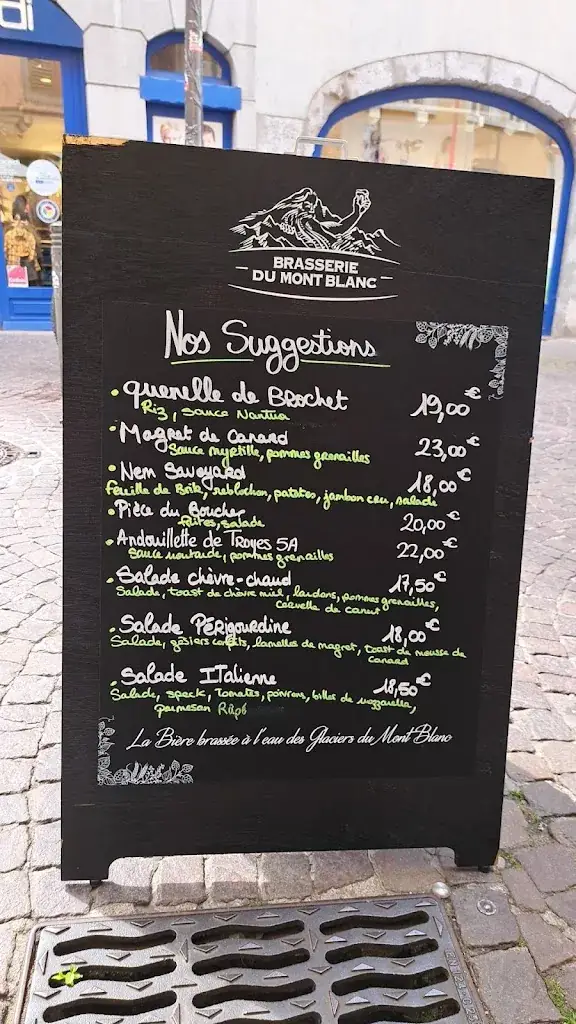 di
BRASSERIE
DU MONT BLANC
Nos Suggestions
• quenelle de Brochet 19,00€
Riz, sauce Nantua
• Magret de Canard 23,00€
Sauce myrtille, pommes grenailles
• Nem Savoyard 18,00€
feuille de Brik, reblochon, patates, jambon cru, salade
• Pièce du Boucher 20,00€
frites, salade
• Andouillette de Troyes 5A 22,00€
Sauce moutarde, pommes grenailles
• Salade chèvre-chaud 17,50€
Salade, toast de chèvre miel, lardons, pommes grenailles,
Cervelle de canut
• Salade Périgourdine 18,00€
Salade, gésiers confits, lamelles de magret, toast de mousse de
canard
• Salade Italienne 18,50€
Salade, speck, Tomates, poivrons, billes de mozzarella,
parmesan Râpé
La Bière brassée à l'eau des Glaciers du Mont Blanc